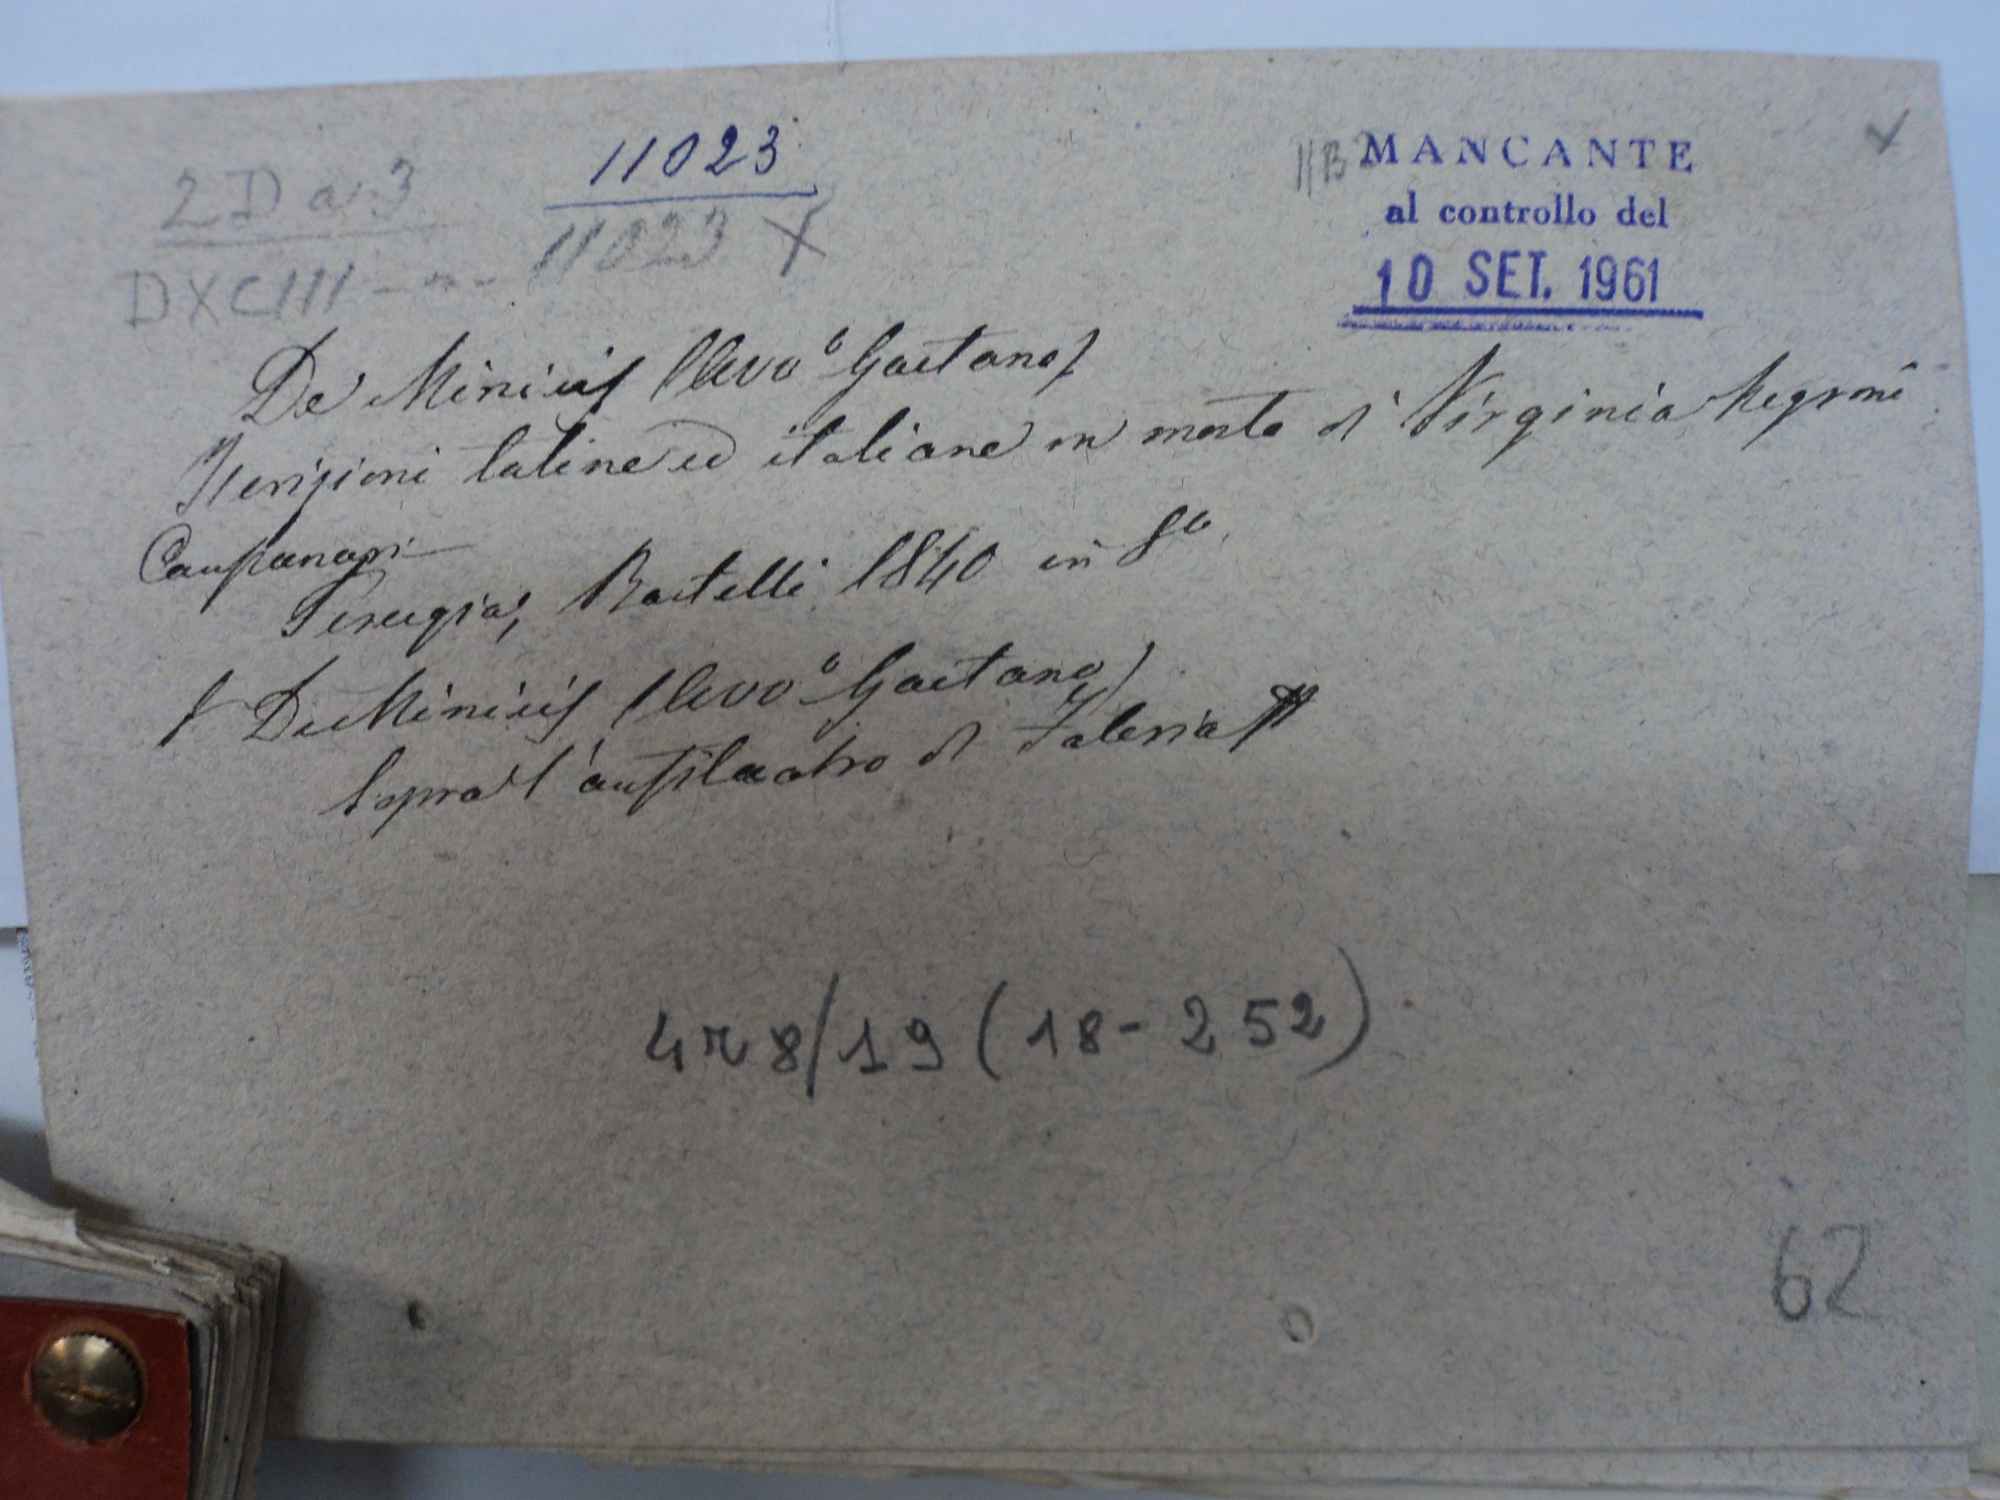 2 D a. 3
11023
11023 X
DXCIII
11B2
MANCANTE
al controllo del
10 SET. 1961
De Minicis (Avv.o Gaetano)
Iscrizioni latine ed italiane in morte di Virginia Negroni
Campanari
Perugia, Bartelli 1840 in 8o.
De Minicis (Avv.o Gaetano)
Sopra l'anfiteatro di Faleria
478/19 (18-252)
62